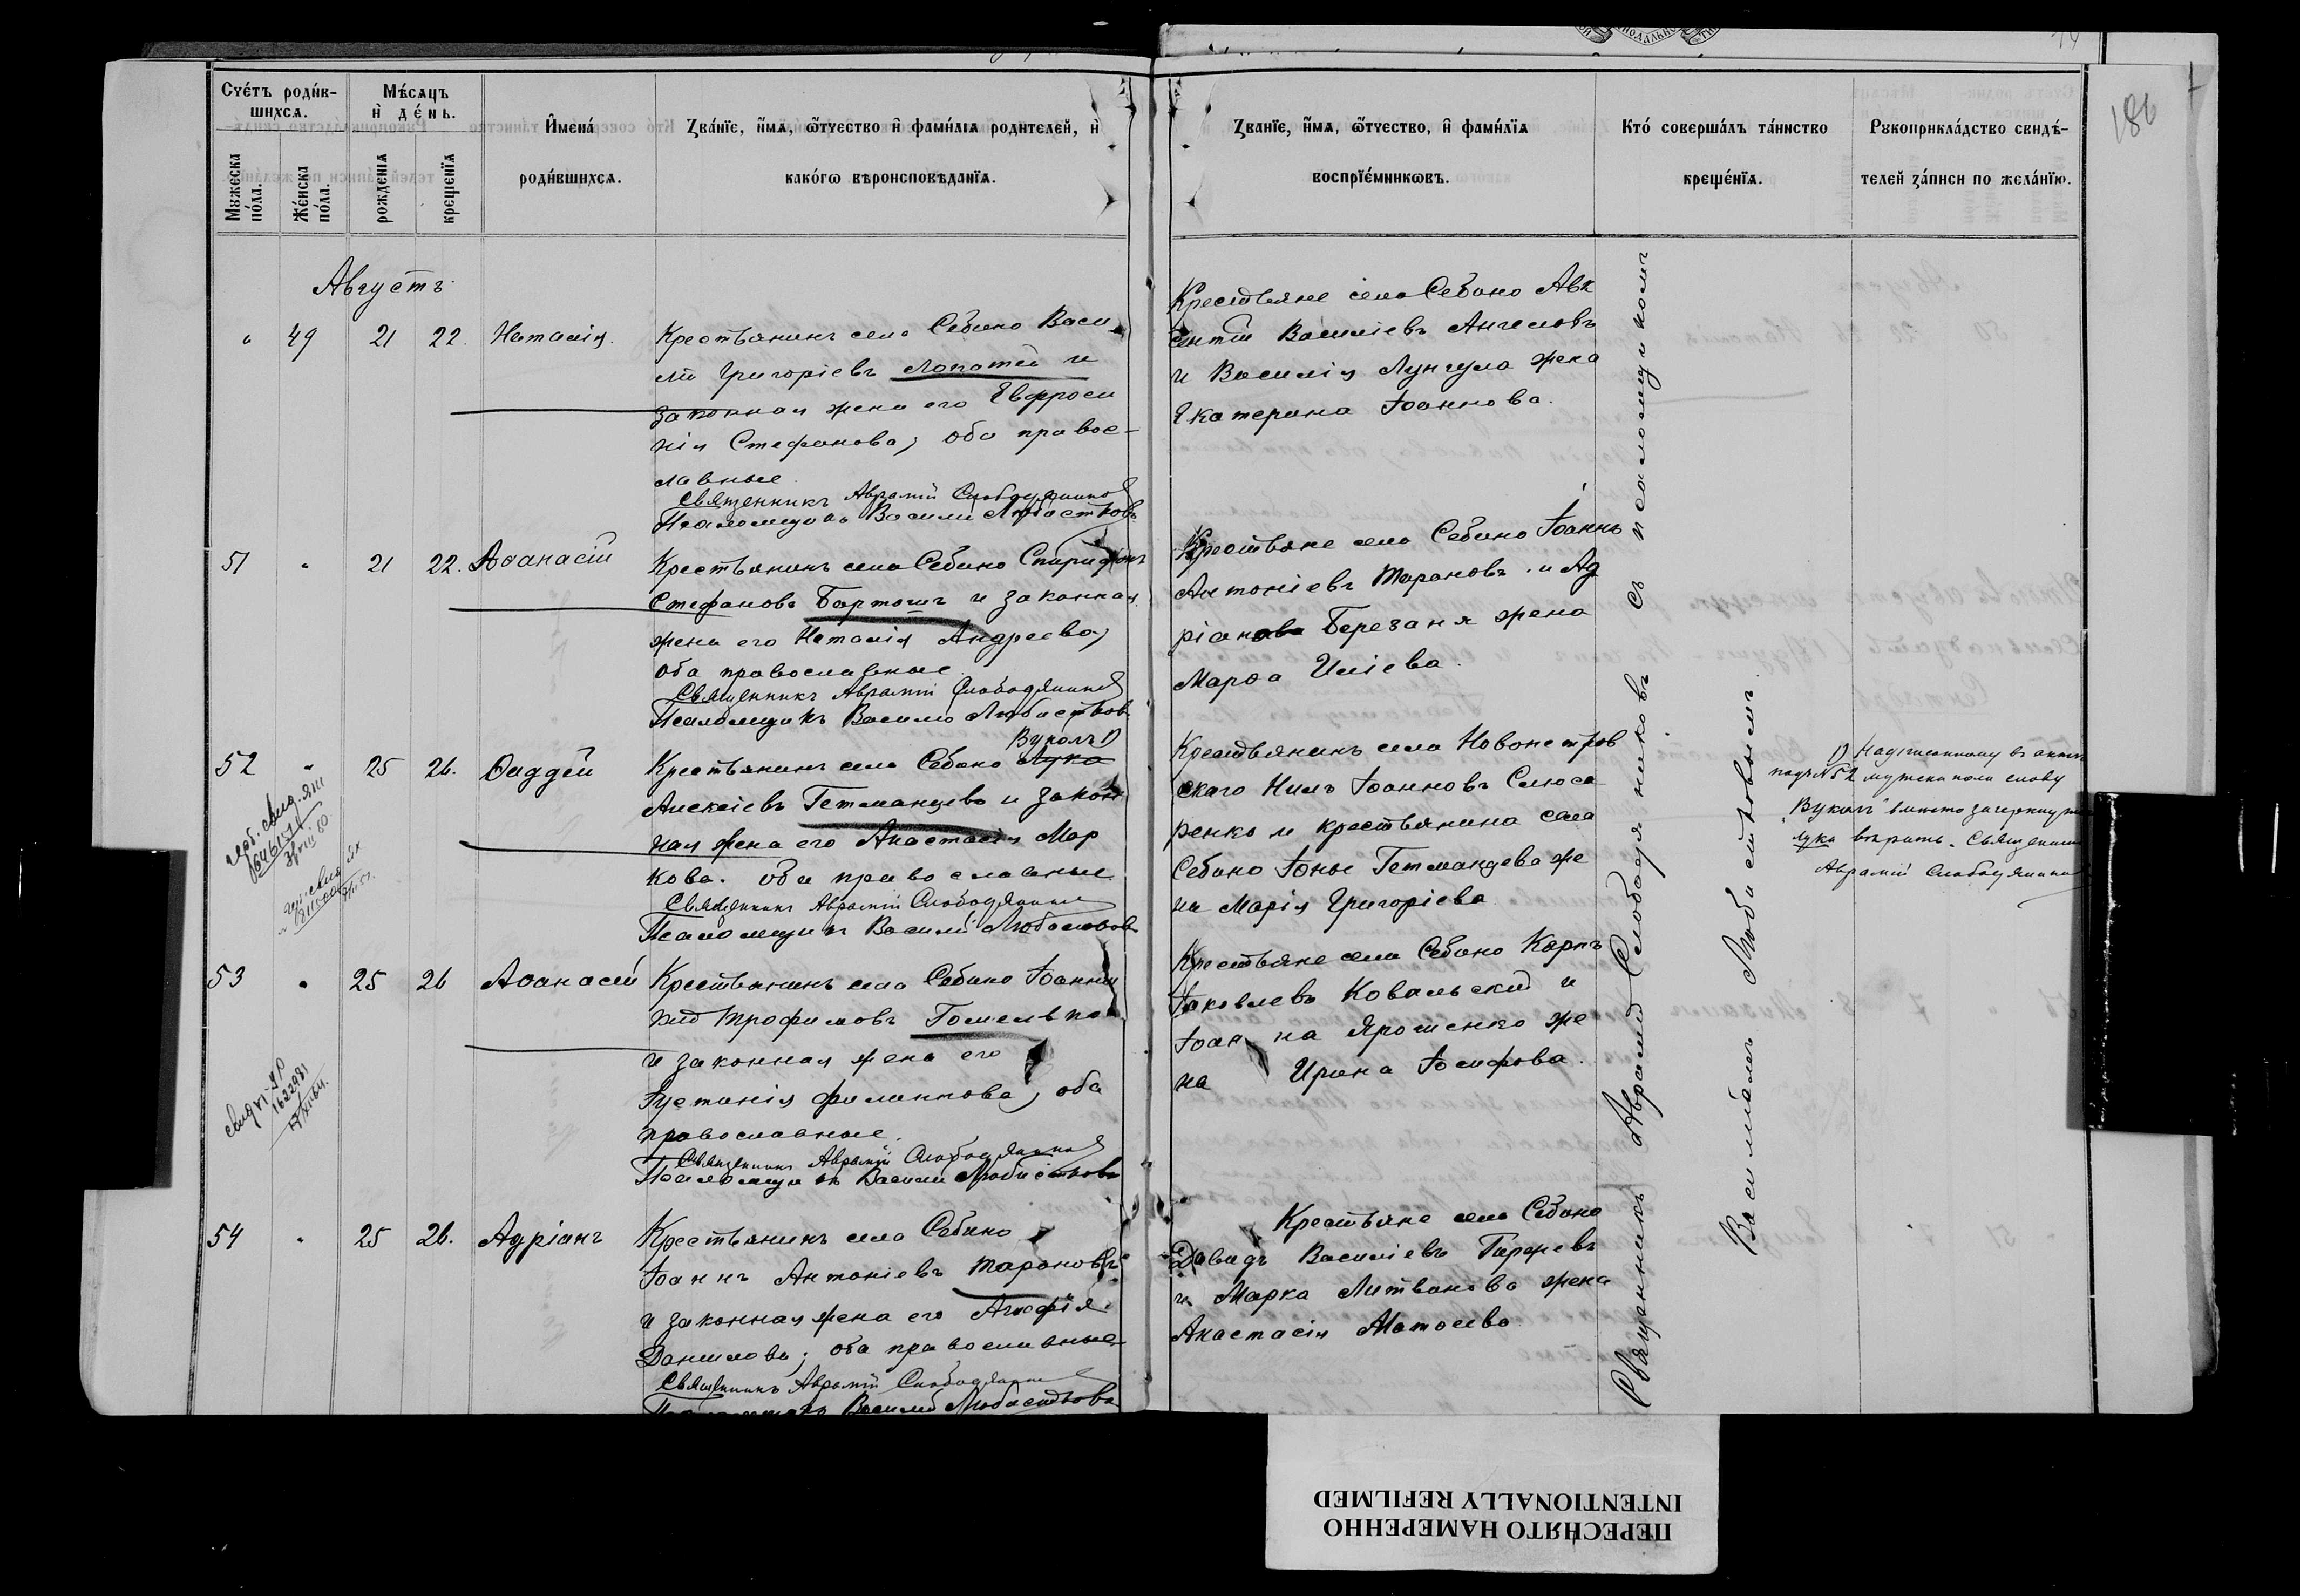 Счетъ родив-
шихся.
Мужеска пола.
Женска пола.
Мѣсяцъ
и день.
рожденія
крещенія
Имена
родившихся.
Званіе, имя, отчество и фамилія родителей, и
какого вѣроисповѣданія.
Званіе, имя, отчество, и фамилія
воспріемниковъ.
Кто совершалъ таинство
крещенія.
Рукоприкладство свидѣ-
телей записи по желанію.
186
Августъ
49 21 22. Наталія.
Крестьянинъ села Себино Васи
лій Григоріевъ Лопатей и
законная жена его Евфроси
нія Стефанова; оба правос-
лавные
Священникъ Аврамій Слободяников
Псаломщикъ Василій Любистковъ
Крестьяне села Себино Авк
сентій Василіевъ Ангеловъ
и Василія Лунгула жена
Екатерина Іоаннова.
51 21 22. Аѳанасій
Крестьянинъ села Себино Спиридонъ
Стефановъ Бартошъ и законная
жена его Наталія Андреева;
оба православные.
Священникъ Аврамій Слободяников
Псаломщикъ Василій Любистков
Крестьяне села Себино Іоаннъ
Антоніевъ Тарановъ и Ад
ріанова Березаня жена
Марѳа Иліева.
52 25 26. Ѳаддей
Вуколъ 1)
Крестьянинъ села Себино Лука
Алексіевъ Гетманцевъ и закон
ная жена его Анастасія Мар
кова. оба православные
Священникъ Аврамій Слободяников
Псаломщикъ Василій Любистковъ
Крестьянинъ села Новопетров
скаго Нилъ Іоанновъ Слюса
ренко и крестьянина села
Себино Іоны Гетманцева же
на Марія Григоріева
1) Надписанному въ актѣ
подъ № 52 мужска пола слову
"Вуколъ" вмѣсто зачеркнут
Лука вѣрить. Священникъ
Аврамій Слободяников
53 25 26 Аѳанасій
Крестьянинъ села Себино Іоанни
кій Трофимовъ Гомельпо
и законная жена его
Іустинія Филиппова; оба
православные.
Священникъ Аврамій Слободяников
Псаломщикъ Василій Любистковъ
Крестьяне села Себино Карпъ
Іаковлевъ Ковальскій и
Іоанна Ярошенко же
на Ирина Іосифова.
54 25 26. Адріанъ
Крестьянинъ села Себино
Іоаннъ Антоніевъ Тарановъ
и законная жена его Агафія
Даніилова; оба православные
Священникъ Аврамій Слободяников
Псаломщикъ Василій Любистковъ
Крестьяне села Себино
Давидъ Василіевъ
и Марка Литванова жена
Анастасія Матѳіева
Священникъ Аврамій Слободяниковъ съ псаломщикомъ
Василіемъ Любистковымъ.
ПЕРЕСНЯТО НАМЕРЕННО
INTENTIONALLY REFILMED